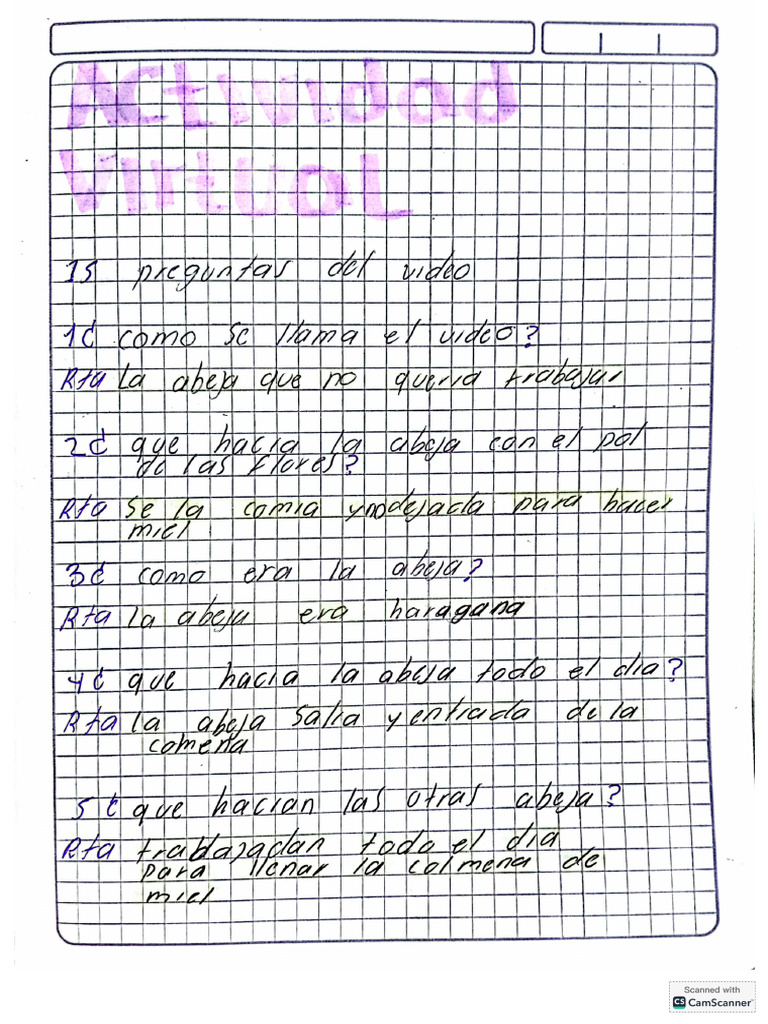 Actividad
Virtual
15 preguntas del video
1¿ como se llama el video?
Rta La abeja que no queria trabajar
2¿ que hacia la abeja con el pol
de las flores?
Rta se la comia ynodejada para hacer
miel
3¿ como era la abeja?
Rta la abeja era haragana
4¿ que hacia la abeja todo el dia?
Rta la abeja salia y entrada de la
comena
5¿ que hacian las otras abeja?
Rta trabajadan todo el dia
para llenar la colmena de
miel
Scanned with
CS CamScanner